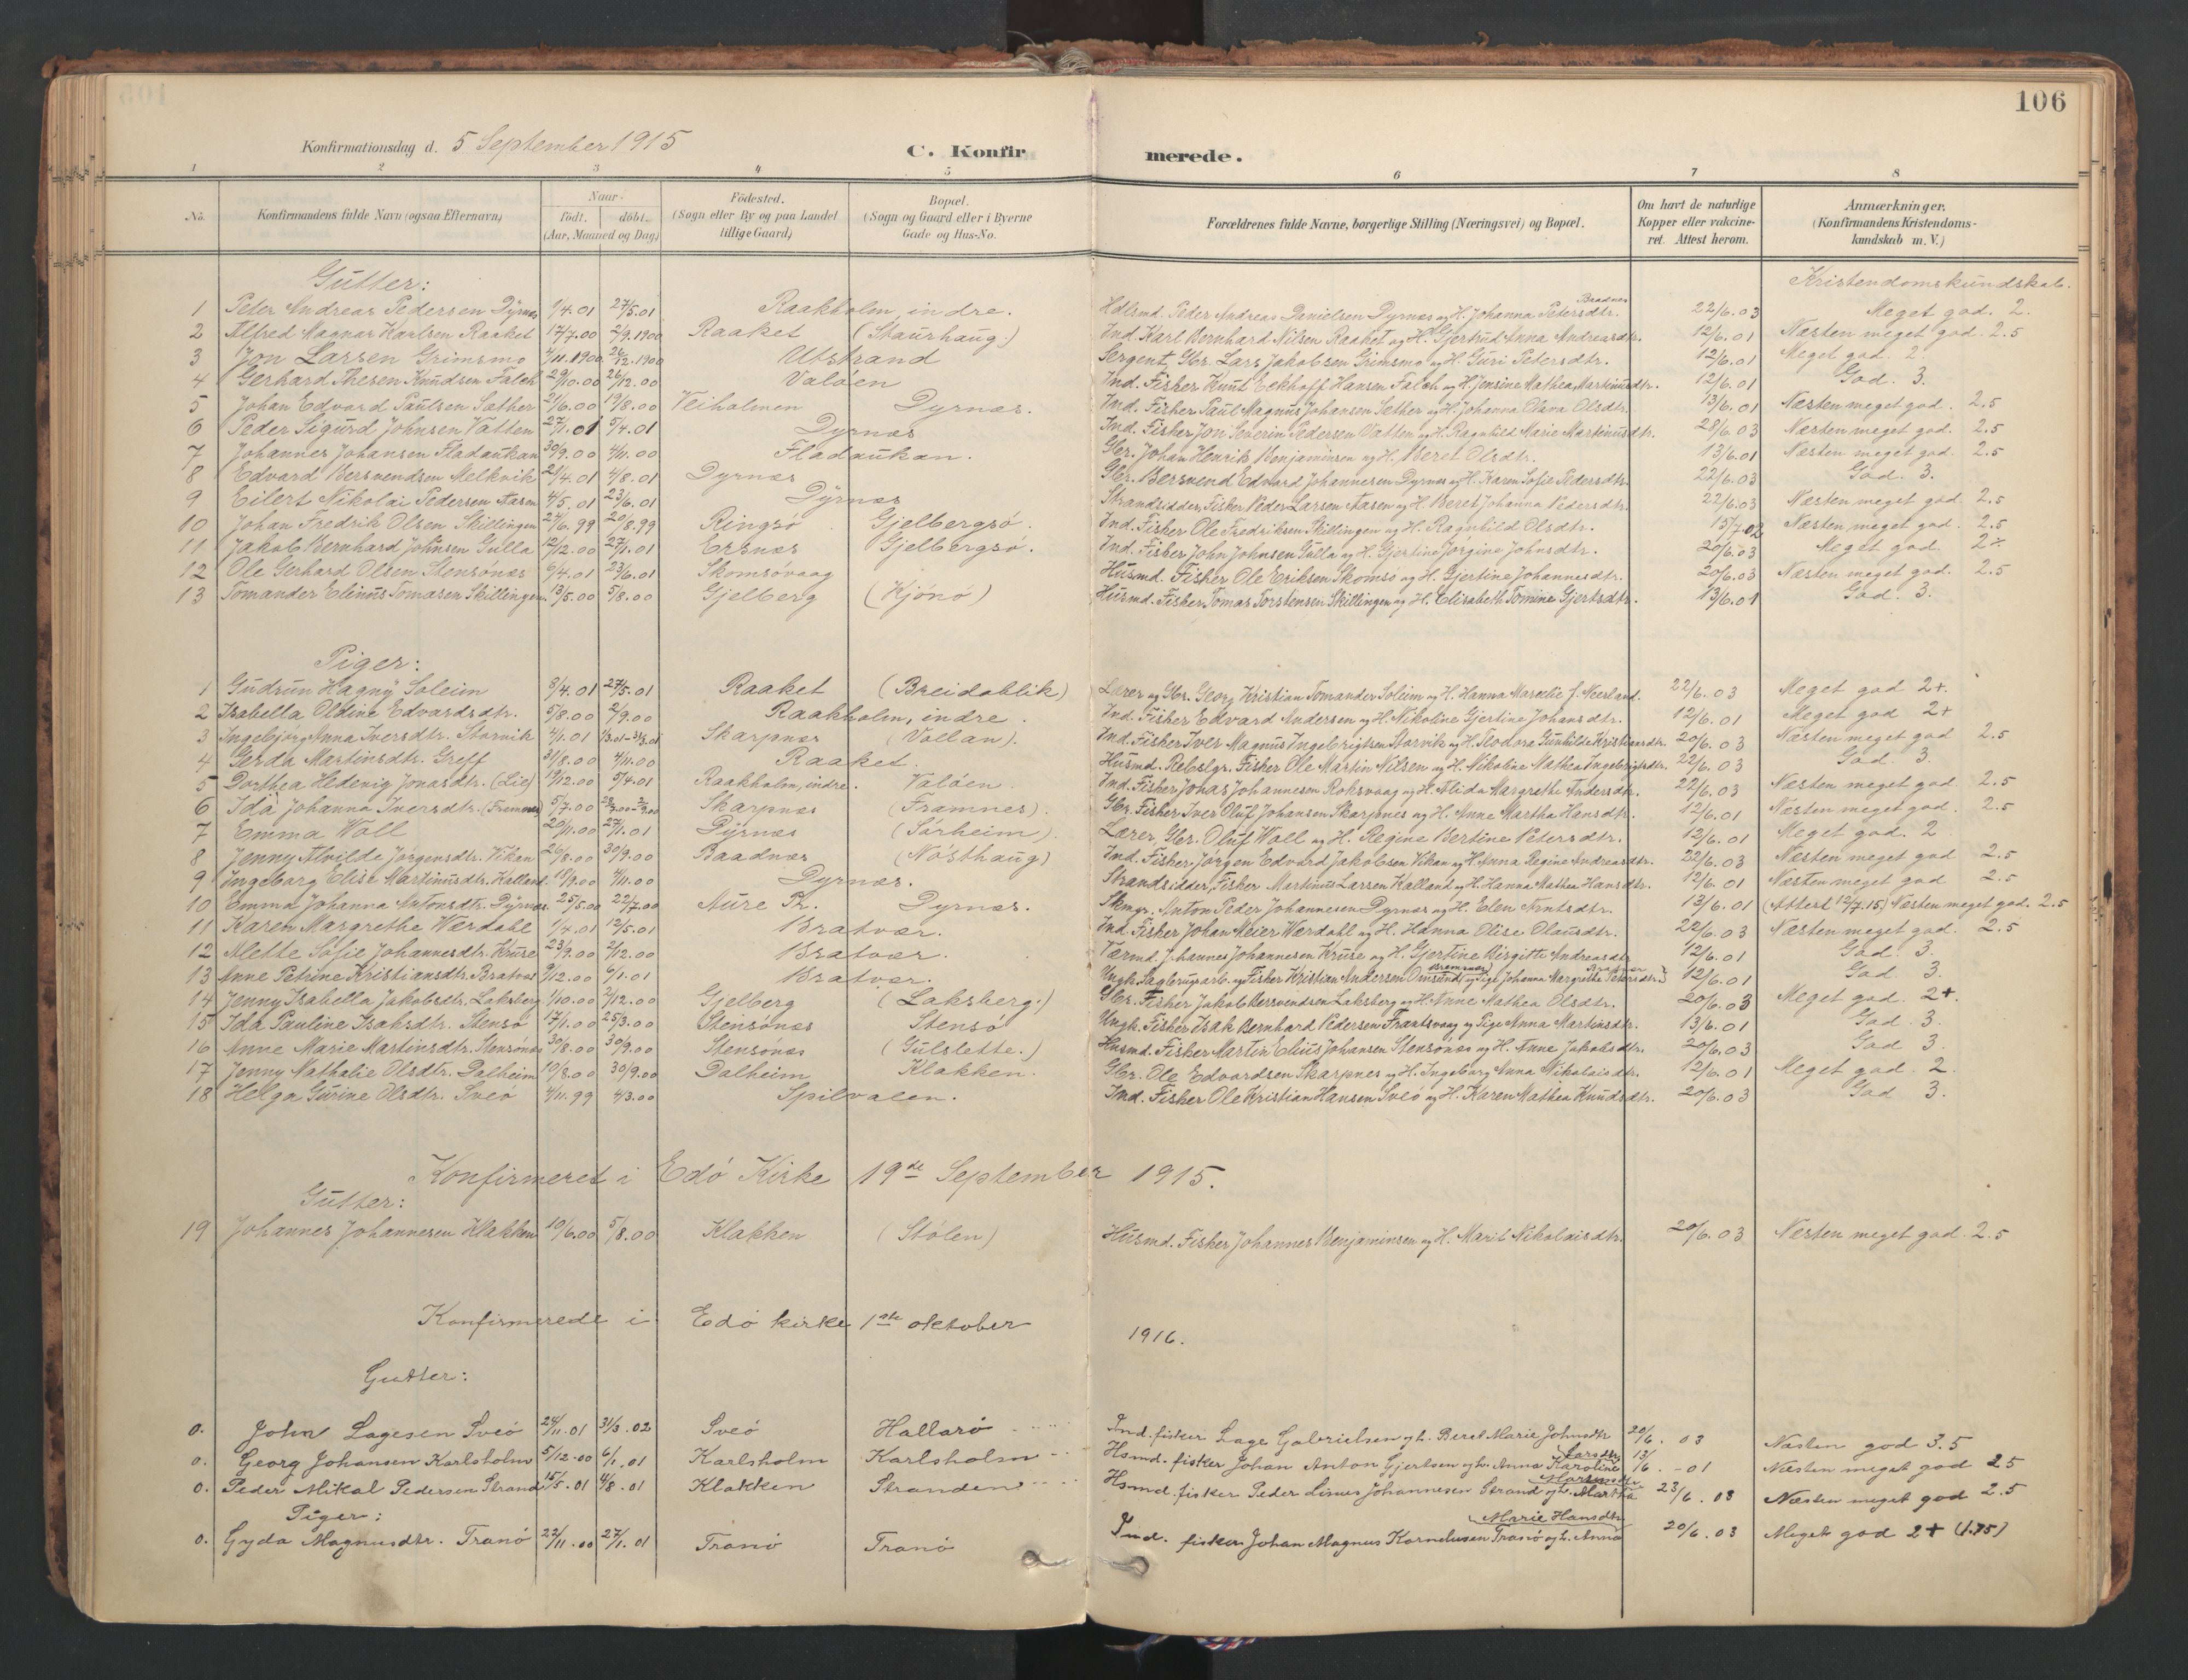 106
Konfirmationsdag d. 5 September 1915
C. Konfirmerede.
1 2 3 4 5 6 7 8
No. Konfirmandens fulde Navn (ogsaa Efternavn) Naar født. døbt. (Aar, Maaned og Dag) Födested. (Sogn eller By og paa Landet tillige Gaard) Bopæl. (Sogn og Gaard eller i Byerne Gade og Hus-No. Forældrenes fulde Navne, borgerlige Stilling (Næringsvei) og Bopæl. Om havt de naturlige Kopper eller vakcineret. Attest herom. Anmærkninger. (Konfirmandens Kristendomskundskab m. V.)
Gutter: Kristendomskundskab.
1 Peter Andreas Pedersen Dyrnes 1/4.01 27/5.01 Raakholm, indre. Hdlsmd. Peder Andreas Danielsen Dyrnæs og H. Johanna Petersdtr. Baadnes 22/6.03 Meget god. 2.
2 Alfred Magnar Karlsen Raaket 17/7.00 2/9.1900 Raaket (Staurhaug.) Ind. Karl Bernhard Nilsen Raaket og H. Gjertrud Anna Andreasdtr. 12/6.01 Næsten meget god. 2.5
3 Jon Larsen Grimsmo 7/11.1900 26/12.1900 Utstrand Sergent, Gbr. Lars Jakobsen Grimsmo og H. Guri Petersdtr. 12/6.01 Meget god. 2.
4 Gerhard Thesen Knudsen Falch 29/10.00 26/12.00 Valöen Ind. Fisker Knut Eckhoff Hansen Falch og H. Jensine Mathea Martinusdtr. 12/6.01 God. 3.
5 Johan Edvard Paulsen Sæther 21/6.00 19/8.00 Veiholmen Dyrnæs. Ind. Fisker Paul Magnus Johansen Sether og H. Johanna Olava Olsdtr. 13/6.01 Næsten meget god. 2.5
6 Peder Sigurd Johnsen Vatten 27/1.01 5/4.01 Dyrnæs Ind. Fisker Jon Severin Pedersen Vatten og H. Ragnhild Marie Martinusdtr. 28/6.03 Næsten meget god. 2.5
7 Johannes Johansen Fladaukan 30/9.00 4/11.00 Fladaukan. Gbr. Johan Henrik Benjaminsen og H. Beret Olsdtr. 13/6.01 Næsten meget god. 2.5
8 Edvard Bersvendsen Melkvik 21/4.01 4/8.01 Dyrnæs Gbr. Bersvend Edvard Johannesen Dyrnes og H. Karen Sofie Pedersdtr. 22/6.03 God. 3.
9 Eilert Nikolai Pedersen Aasen 4/5.01 23/6.01 Dyrnæs Strandsidder, Fisker Peder Larsen Aasen og H. Beret Johanna Pedersdtr. 22/6.03 Næsten meget god. 2.5
10 Johan Fredrik Olsen Skillingen 24/6.99 20/8.99 Ringsö Gjelbergsö. Ind. Fisker Ole Fredriksen Skillingen og H. Ragnhild Olsdtr. 15/7.02 Næsten meget god. 2.5
11 Jakob Bernhard Johnsen Gulla 12/12.00 27/1.01 Ersnæs Gjelbergsö. Ind. Fisker John Johnsen Gulla og H. Gjertine Jörgine Johnsdtr. 20/6.03 Meget god. 2÷
12 Ole Gerhard Olsen Stensönæs 6/4.01 23/6.01 Skomsövaag Husmd. Fisker Ole Eriksen Skomsö og H. Gjertine Johannesdtr. 20/6.03 Næsten meget god. 2.5
13 Tomander Elinus Tomasen Skillingen 13/5.00 5/8.00 Gjelberg (Kjönö) Husmd. Fisker Tomas Torstensen Skillingen og H. Elisabeth Tomine Gjertsdtr. 13/6.01 God. 3.
Piger:
1 Gudrun Hagny Soleim 8/4.01 27/5.01 Raaket (Breidablik) Lærer og Gbr. Georg Kristian Tomander Soleim og H. Hanna Marethe f. Neerland. 22/6.03 Meget god 2+.
2 Isabella Oldine Edvardsdtr. 5/8.00 2/9.00 Raakholm, indre. Ind. Fisker Edvard Andersen og H. Nikoline Gjertine Johansdtr. 12/6.01 Meget god 2+
3 Ingebjörg Anna Iversdtr. Storvik 4/1.01 1/3.01-31/3.01 Skarpnæs (Vollan). Ind. Fisker Iver Magnus Ingebrigtsen Storvik og H. Teodora Gunhilde Kristiansdtr. 20/6.03 Næsten meget god 2.5
4 Gerda Martinsdtr. Greff 31/8.00 4/11.00 Raaket. Husmd. Rebslgr. Fisker Ole Martin Nilsen og H. Nikoline Mathea Ingebrigtsdtr. 22/6.03 God. 3.
5 Dorthea Hedevig Jonasdtr. (Lie) 19/12.00 5/4.01 Raakholm, indre. Valöen Ind. Fisker Jonas Johannesen Roksvaag og H. Alida Margrethe Andersdtr. 22/6.03 Næsten meget god. 2.5
6 Ida Johanna Iversdtr. (Fremnes) 5/7.00 Skarpnæs (Framnes). Gbr. Fisker Iver Oluf Johansen Skarpnes og H. Anne Martha Hansdtr. 12/6.01 Næsten meget god. 2.5
7 Emma Woll 20/11.00 27/1.01 Dyrnæs (Sørheim). Lærer, Gbr. Oluf Woll og H. Regine Bertine Petersdtr. 12/6.01 Meget god. 2
8 Jenny Alvilde Jörgensdtr. Viken 26/8.00 30/9.00 Baadnæs (Nösthaug) Ind. Fisker Jörgen Edvard Jakobsen Vikan og H. Anna Regine Andreasdtr. 22/6.03 Næsten meget god 2.5
9 Ingeborg Elise Martinusdtr. Kalland. 18/9.00 4/11.00 Dyrnæs. Strandsidder, Fisker Martinus Larsen Kalland og H. Hanna Mathea Hansdtr. 12/6.01 Næsten meget god 2.5
10 Emma Johanna Antonsdtr. Dyrnæs. 25/5.00 22/7.00 Aure Pr. Dyrnæs. Skmgr. Anton Peder Johannesen Dyrnæs og H. Elen Arntsdtr. 13/6.01 (Attest 12/7.15) Næsten meget god. 2.5
11 Karen Margrethe Wærdahl 1/4.01 12/5.01 Bratvær. Ind. Fisker Johan Meier Wærdahl og H. Hanna Olise Olausdtr. 22/6.03 Næsten meget god. 2.5
12 Alette Sofie Johannesdtr. Kruse 23/9.00 2/12.00 Bratvær. Værmd. Johannes Johannesen Kruse og H. Gjertine Birgitte Andreasdtr. 12/6.01 God. 3.
13 Anne Petrine Kristiansdtr. Bratvær 9/12.00 6/1.01 Bratvær. Ungk. Sagbrugsarb. og Fisker Kristian Andersen Omsund (Bremsnes) og Pige Johanna Margrethe Petersdtr. Bratvær 12/6.01 God. 3.
14 Jenny Isabella Jakobsdtr. Laksberg 1/10.00 2/12.00 Gjelberg (Laksberg.) Gbr. Fisker Jakob Bersvendsen Laksberg og H. Anne Mathea Olsdtr. 20/6.03 Meget god. 2+.
15 Ida Pauline Isaksdtr. Stensö 17/1.00 25/3.00 Stensönæs Stensö Ungk. Fisker Isak Bernhard Pedersen Fraatsvaag og Pige Anna Martinsdtr. 13/6.01 God 3.
16 Anne Marie Martinsdtr. Stensönæs 30/8.00 30/9.00 Stensönæs (Gulslette.) Husmd. Fisker Martin Elius Johansen Stensönæs og H. Anne Jakobsdtr. 20/6.03 God 3.
17 Jenny Nathalie Olsdtr. Dalheim 10/8.00 30/9.00 Dalheim Klakken. Gbr. Ole Edvardsen Skarpnes og H. Ingeborg Anna Nikolaisdtr. 12/6.01 Meget god. 2.
18 Helga Gurine Olsdtr. Sveö 4/11.99 4/3.00 Spilvalen. Ind. Fisker Ole Kristian Hansen Sveö og H. Karen Mathea Knudsdtr. 20/6.03 God 3.
Konfirmeret i Edö Kirke 19de September 1915.
Gutter:
19 Johannes Johannesen Klakken 10/6.00 5/8.00 Klakken (Stölen) Husmd. Fisker Johannes Benjaminsen og H. Marit Nikolaisdtr. 20/6.03 Næsten meget god. 2.5
Konfirmerede i Edö kirke 1ste oktober 1916.
Gutter:
0. John Lagesen Sveö 24/11.01 31/3.02 Sveö Hallarö Ind. fisker Lage Gabrielsen og h. Beret Marie Johnsdtr 20/6.03 Næsten god 3.5
0. Georg Johansen Karlsholm 5/12.00 6/1.01 Karlsholm Karlsholm Hsmd. fisker Johan Anton Gjertsen og h. Anna Karoline Larsdtr 13/6.-01 Næsten meget god 2.5
0. Peder Mikal Pedersen Strand 15/5.01 4/8.01 Klakken Stranden Hsmd. fisker Peder Linus Johannesen Strand og h. Martha 23/6.03 Næsten meget god 2.5
Piger:
0. Gyda Magnusdtr. Tranö 22/11.00 27/1.01 Tranö Tranö Ind. fisker Johan Magnus Kornelusen Tranö og h. Anna Marie Hansdtr 20/6.03 Meget god 2+ (1.75)